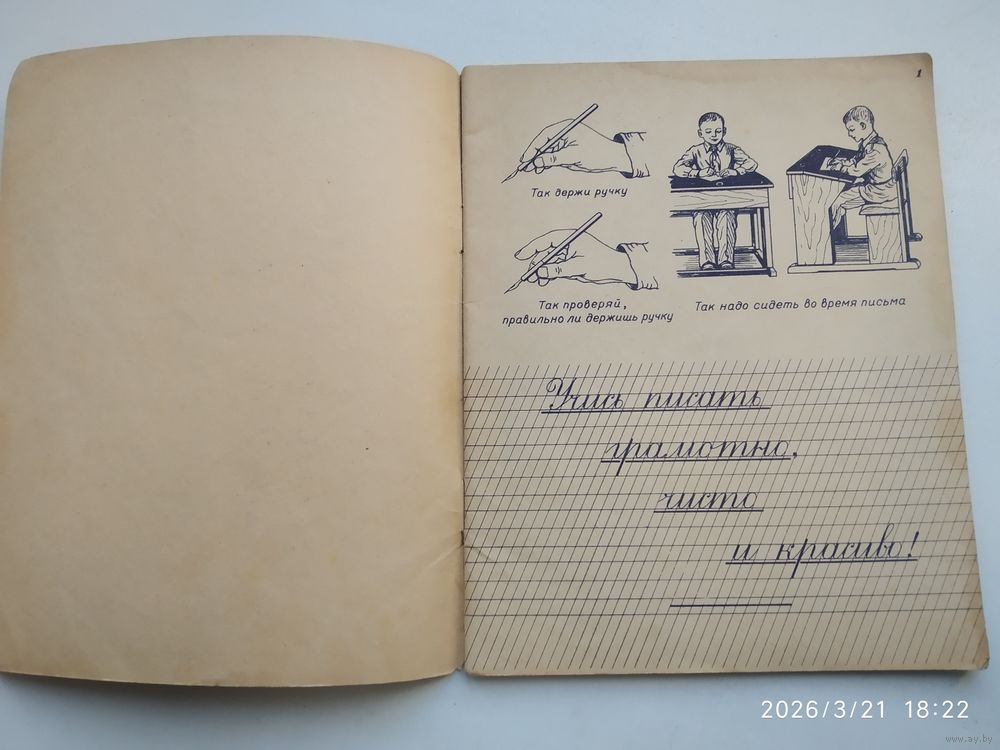 1
Так держи ручку
Так проверяй,
правильно ли держишь ручку
Так надо сидеть во время письма
Учись писать
грамотно,
чисто
и красиво!
2026/3/21 18:22
www.ay.by